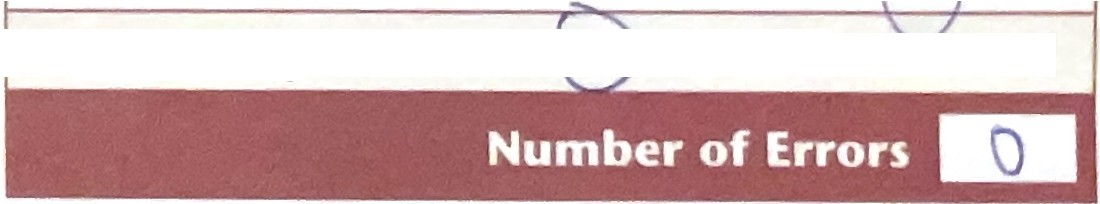 Number of Errors 0